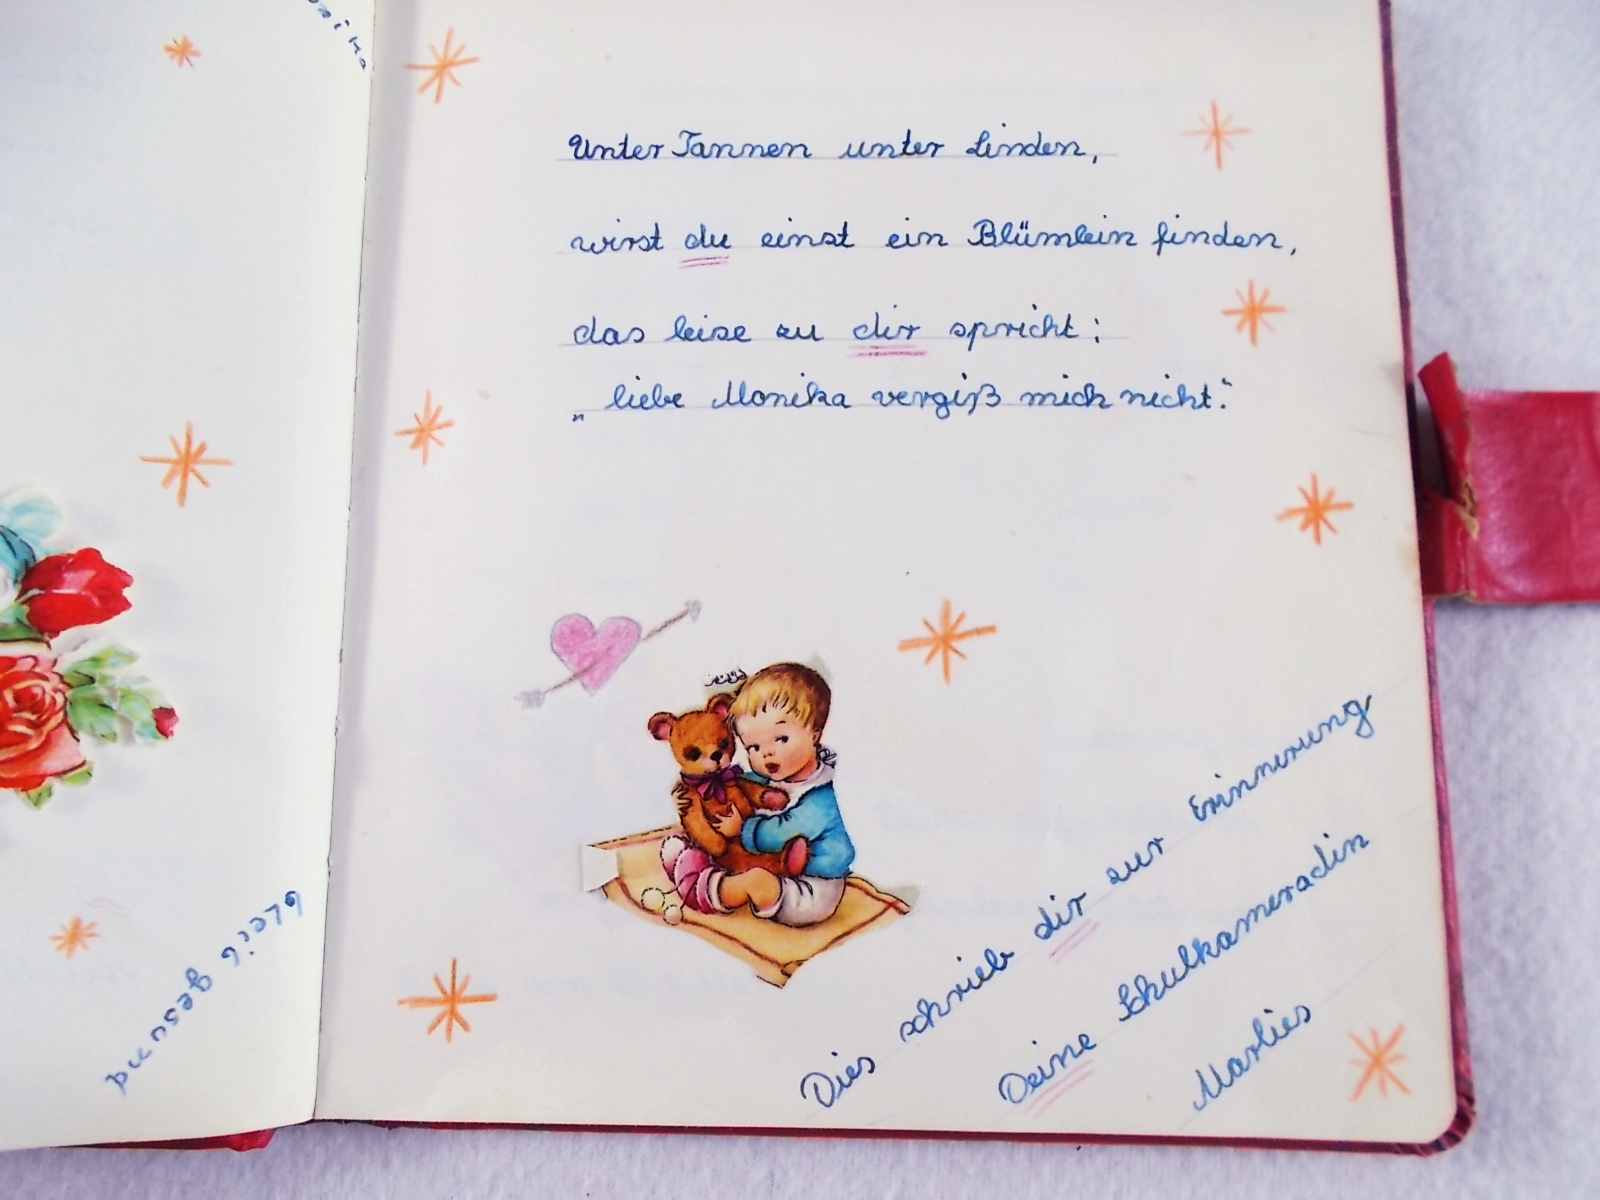 onika
bleib gesund
Unter Tannen unter Linden,
wirst du einst ein Blümlein finden,
das leise zu dir spricht:
„liebe Monika vergiß mich nicht."
Dies schrieb dir zur Erinnerung
Deine Schulkameradin
Marlies